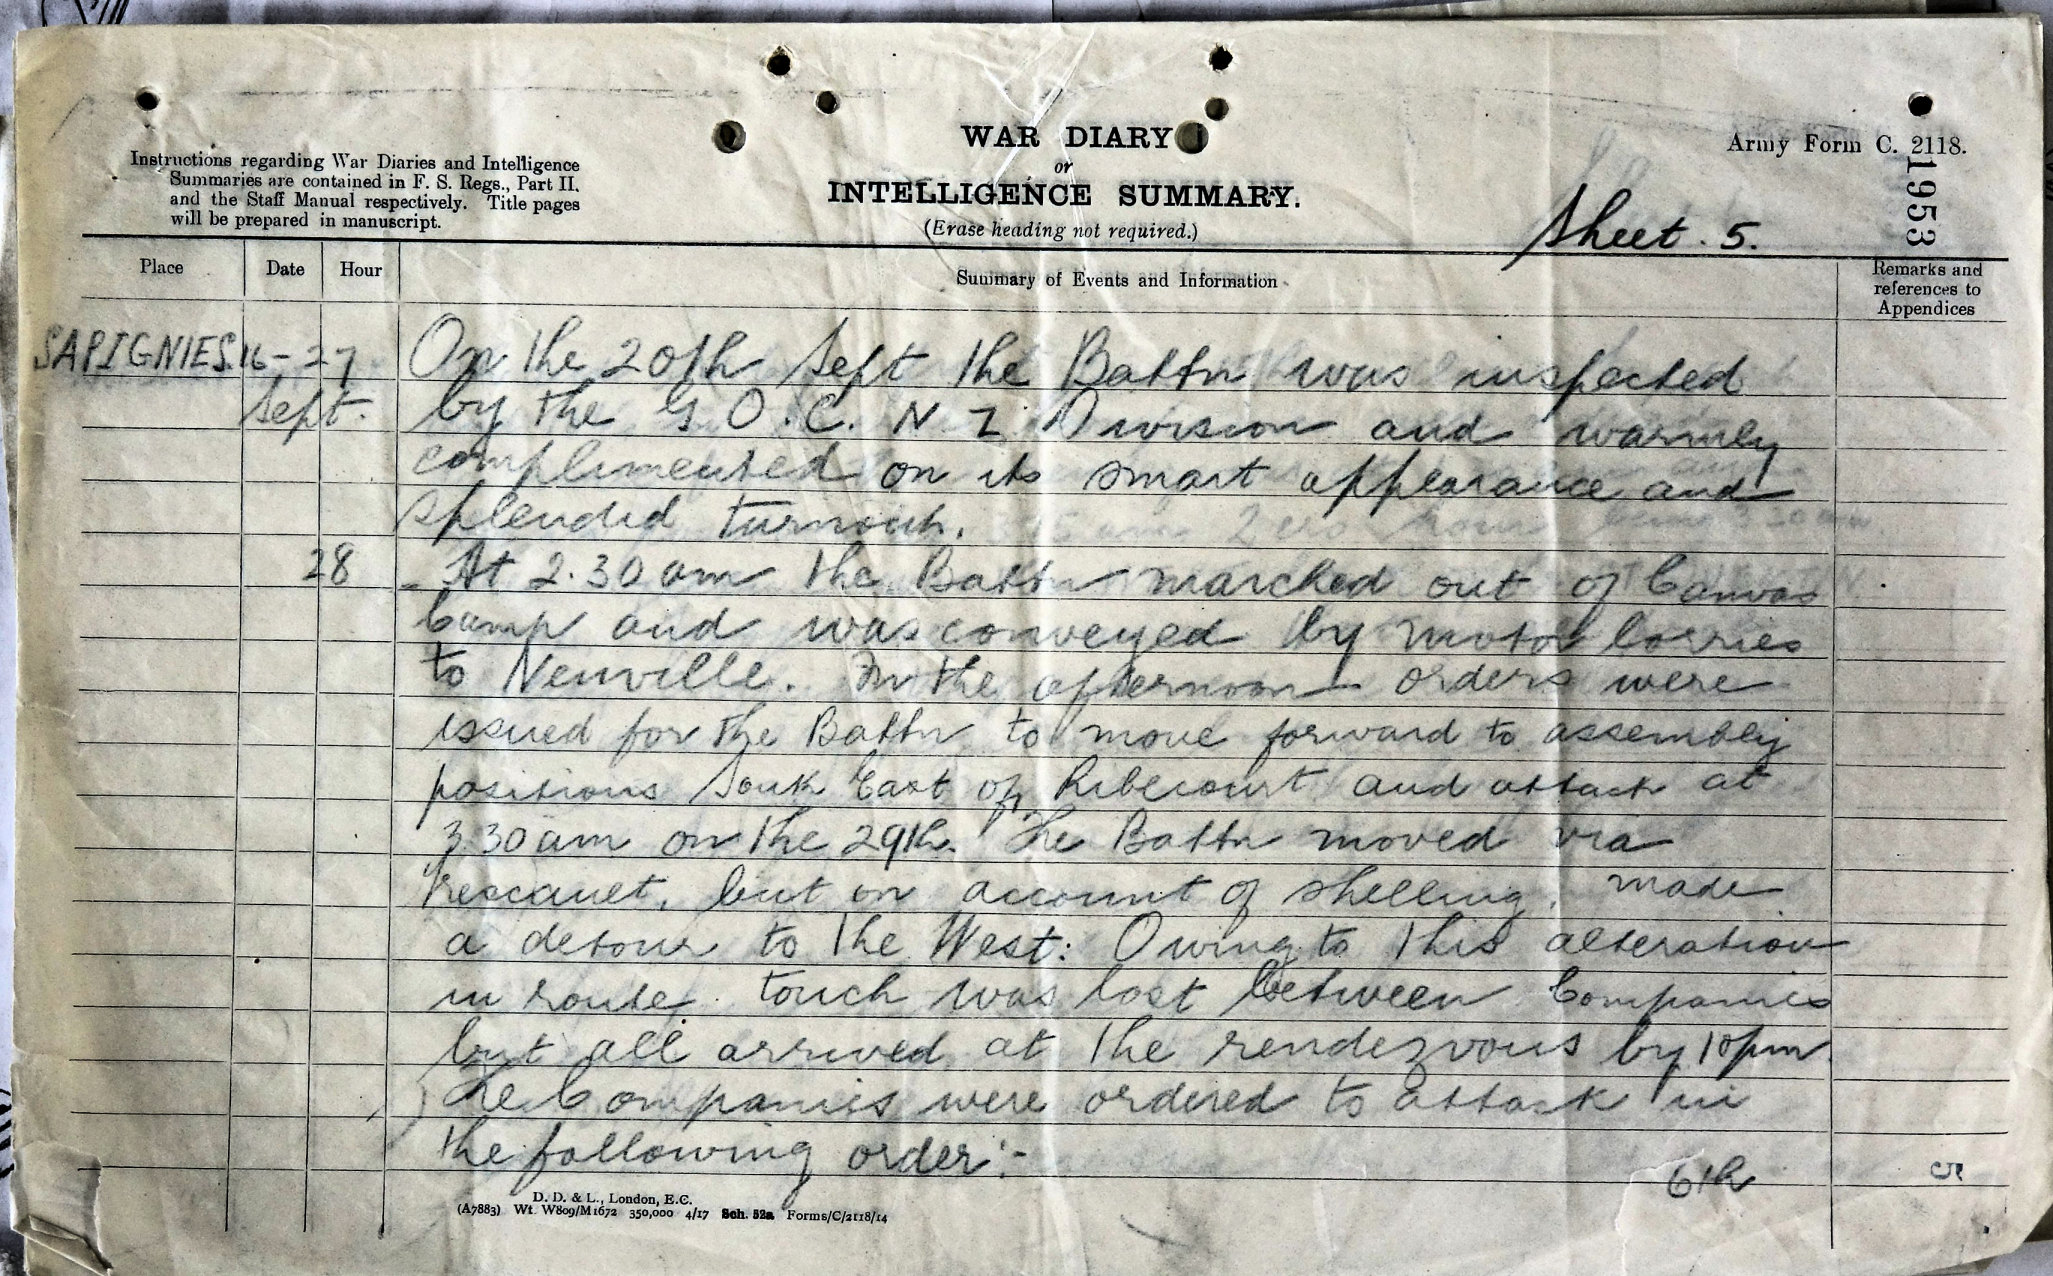 WAR DIARY
or
INTELLIGENCE SUMMARY.
(Erase heading not required.)
Army Form C. 2118.
1953
Instructions regarding War Diaries and Intelligence
Summaries are contained in F. S. Regs., Part II.
and the Staff Manual respectively. Title pages
will be prepared in manuscript.
Sheet. 5.
Place
Date
Hour
Summary of Events and Information
Remarks and
references to
Appendices
SAPIGNIES. 16-27 On the 20th Sept the Battn was inspected
Sept. by the G.O.C. N Z Division and warmly
complimented on its smart appearance and
splendid turnout.
28 At 2.30 am the Battn marched out of Canvas
Camp and was conveyed by motor lorries
to Neuville. In the afternoon orders were
issued for the Battn to move forward to assembly
positions South East of Ribecourt and attack at
3.30 am on the 29th. The Battn moved via
Trescault, but on account of shelling, made
a detour to the West: Owing to this alteration
in route touch was lost between Companies
but all arrived at the rendezvous by 10pm
The Companies were ordered to attack in
the following order:-
6th
5
D. D. & L., London, E.C.
(A7883) Wt. W809/M1672 350,000 4/17 Sch. 52a Forms/C/2118/14